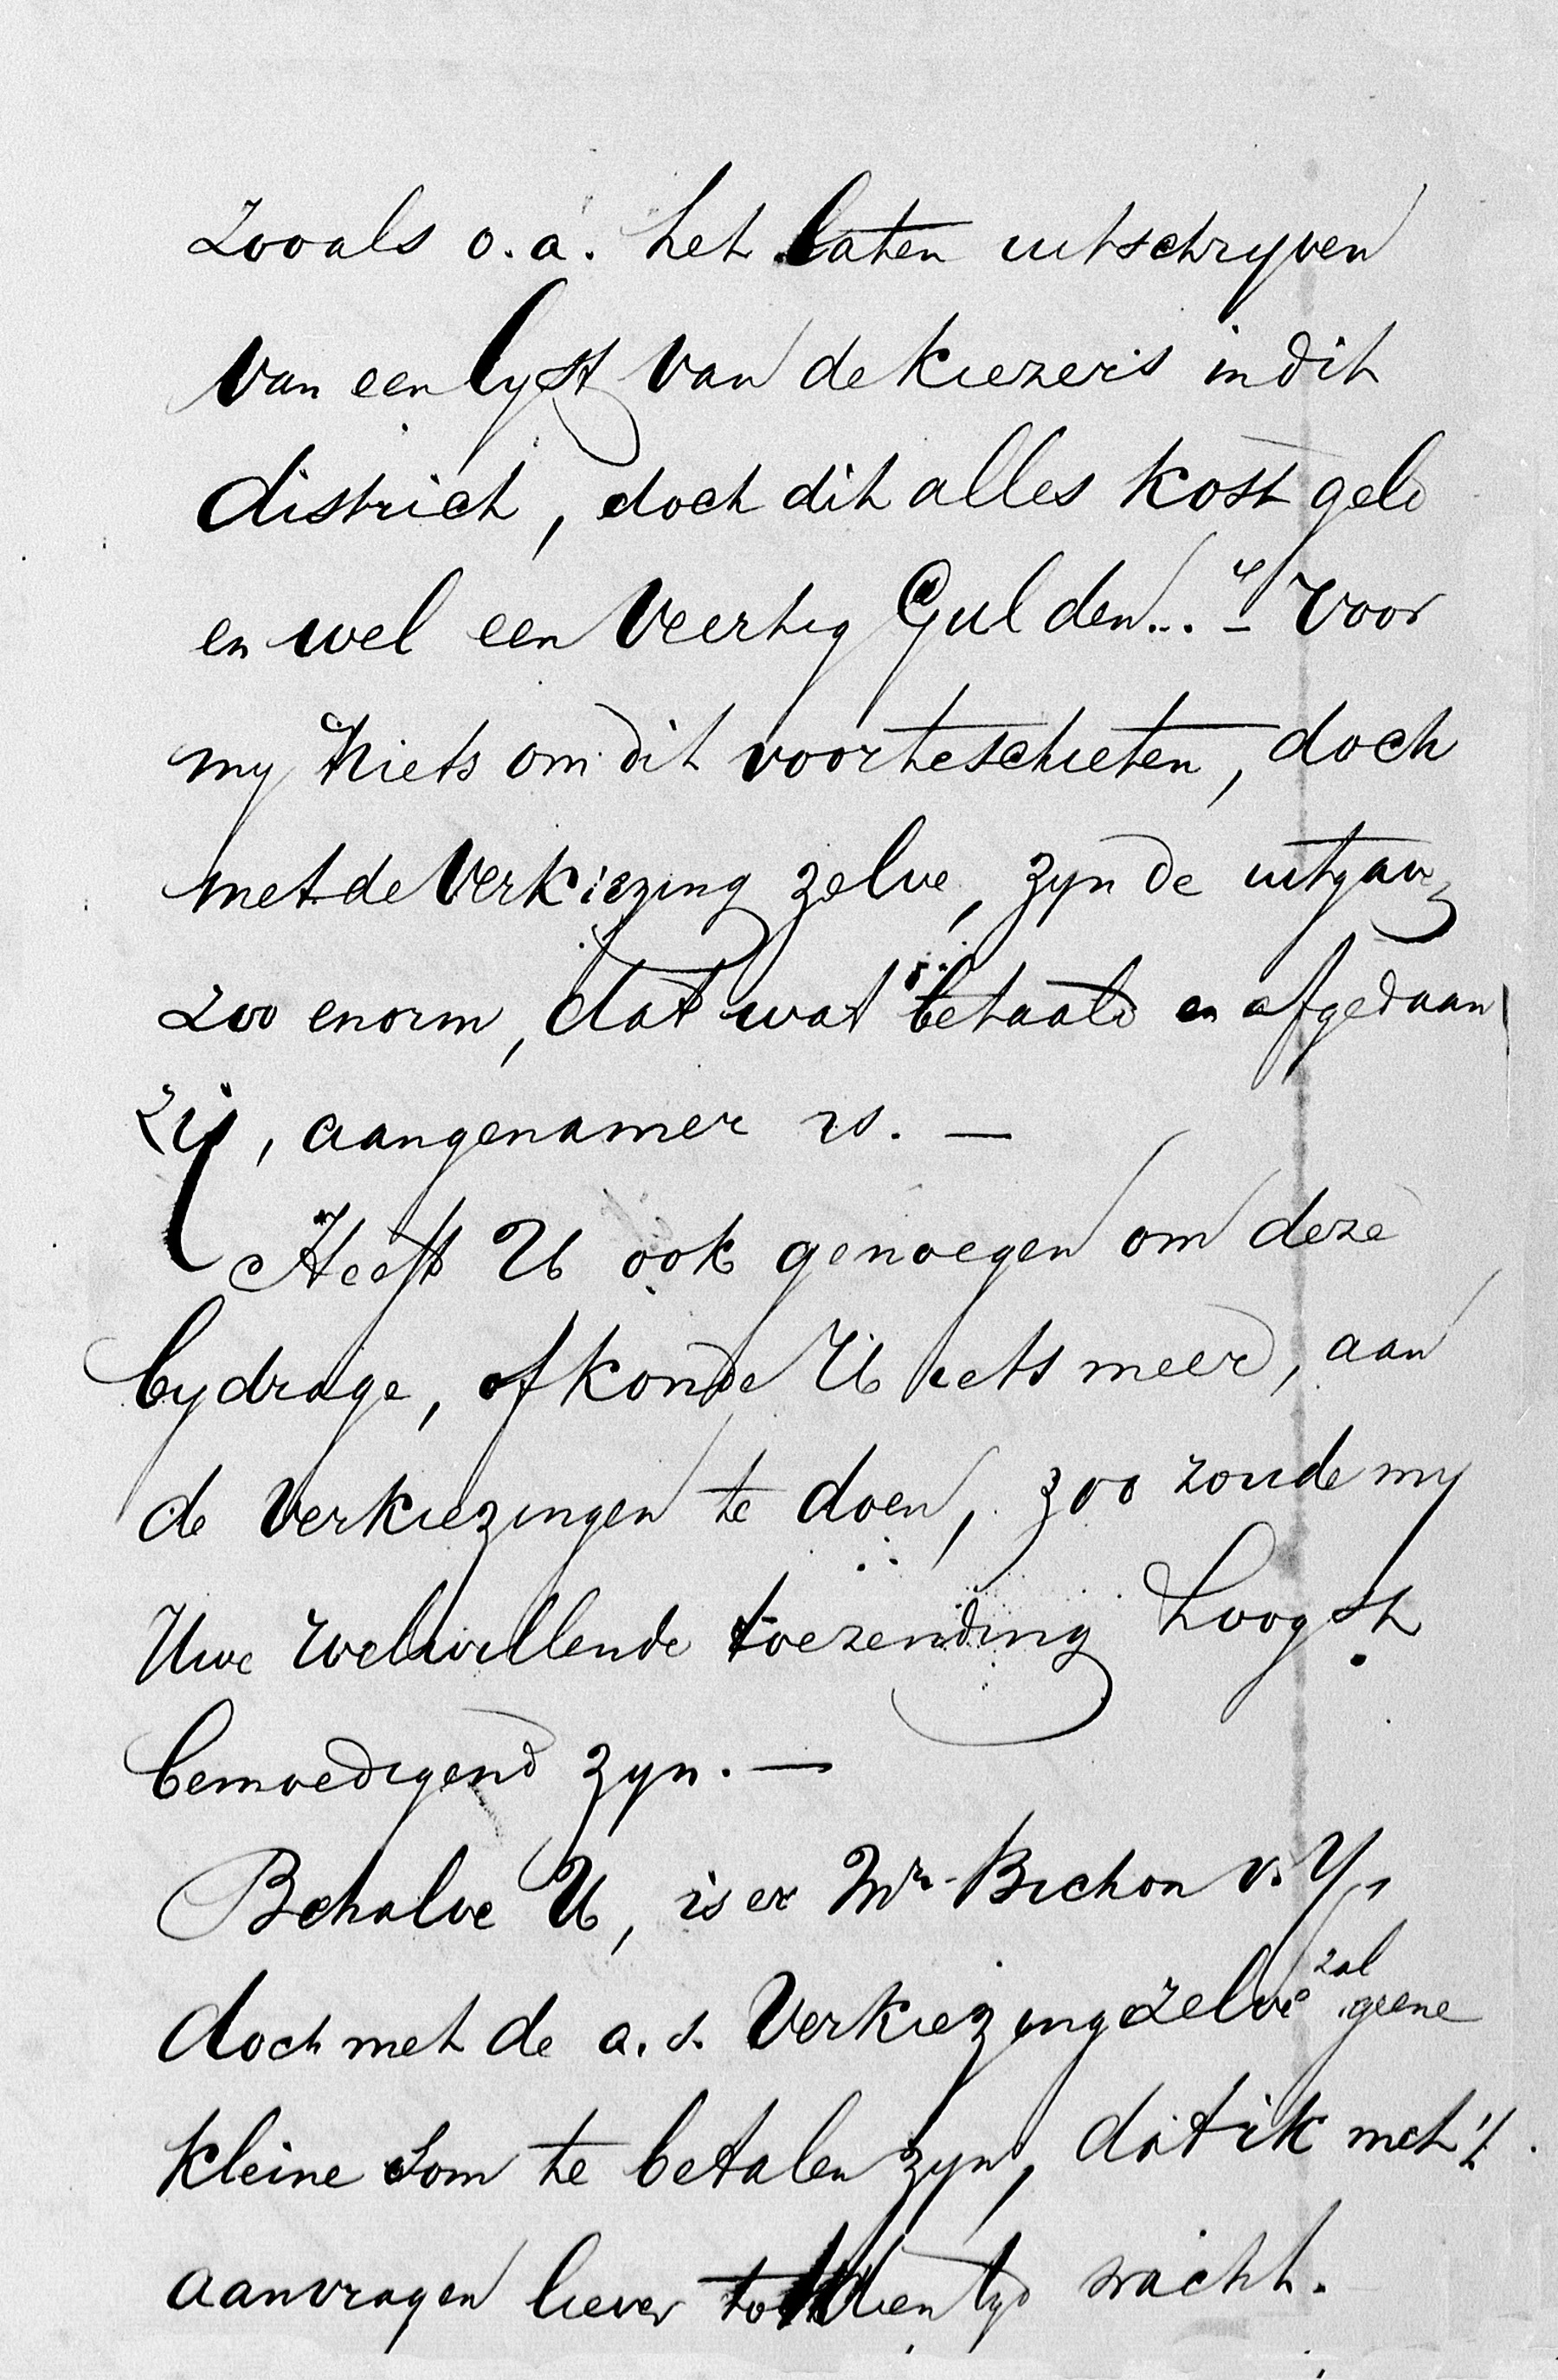 zooals o.a. het laten uitschryven
van een lyst van de kiezers in dit
district, doch dit alles kost geld
en wel een veertig Gulden... - Voor
my niets om dit voorteschieten, doch
met de Verkiezing zelve, zyn de uitgav
zoo enorm, dat wat betaald en afgedaan
zij, aangenamer is. —
Heeft U ook genoegen om deze
bydrage, of konde U iets meer, aan
de verkiezingen te doen, zoo zoude my
Uwe welwillende toezending hoogst
bemoedigend zyn. —
Behalve U, is er Mr. Bichon v. Y,
doch met de a.s. Verkiezing zelve zal geene
kleine som te betalen zyn, dat ik met 't
aanvragen liever tot dien tyd wacht.